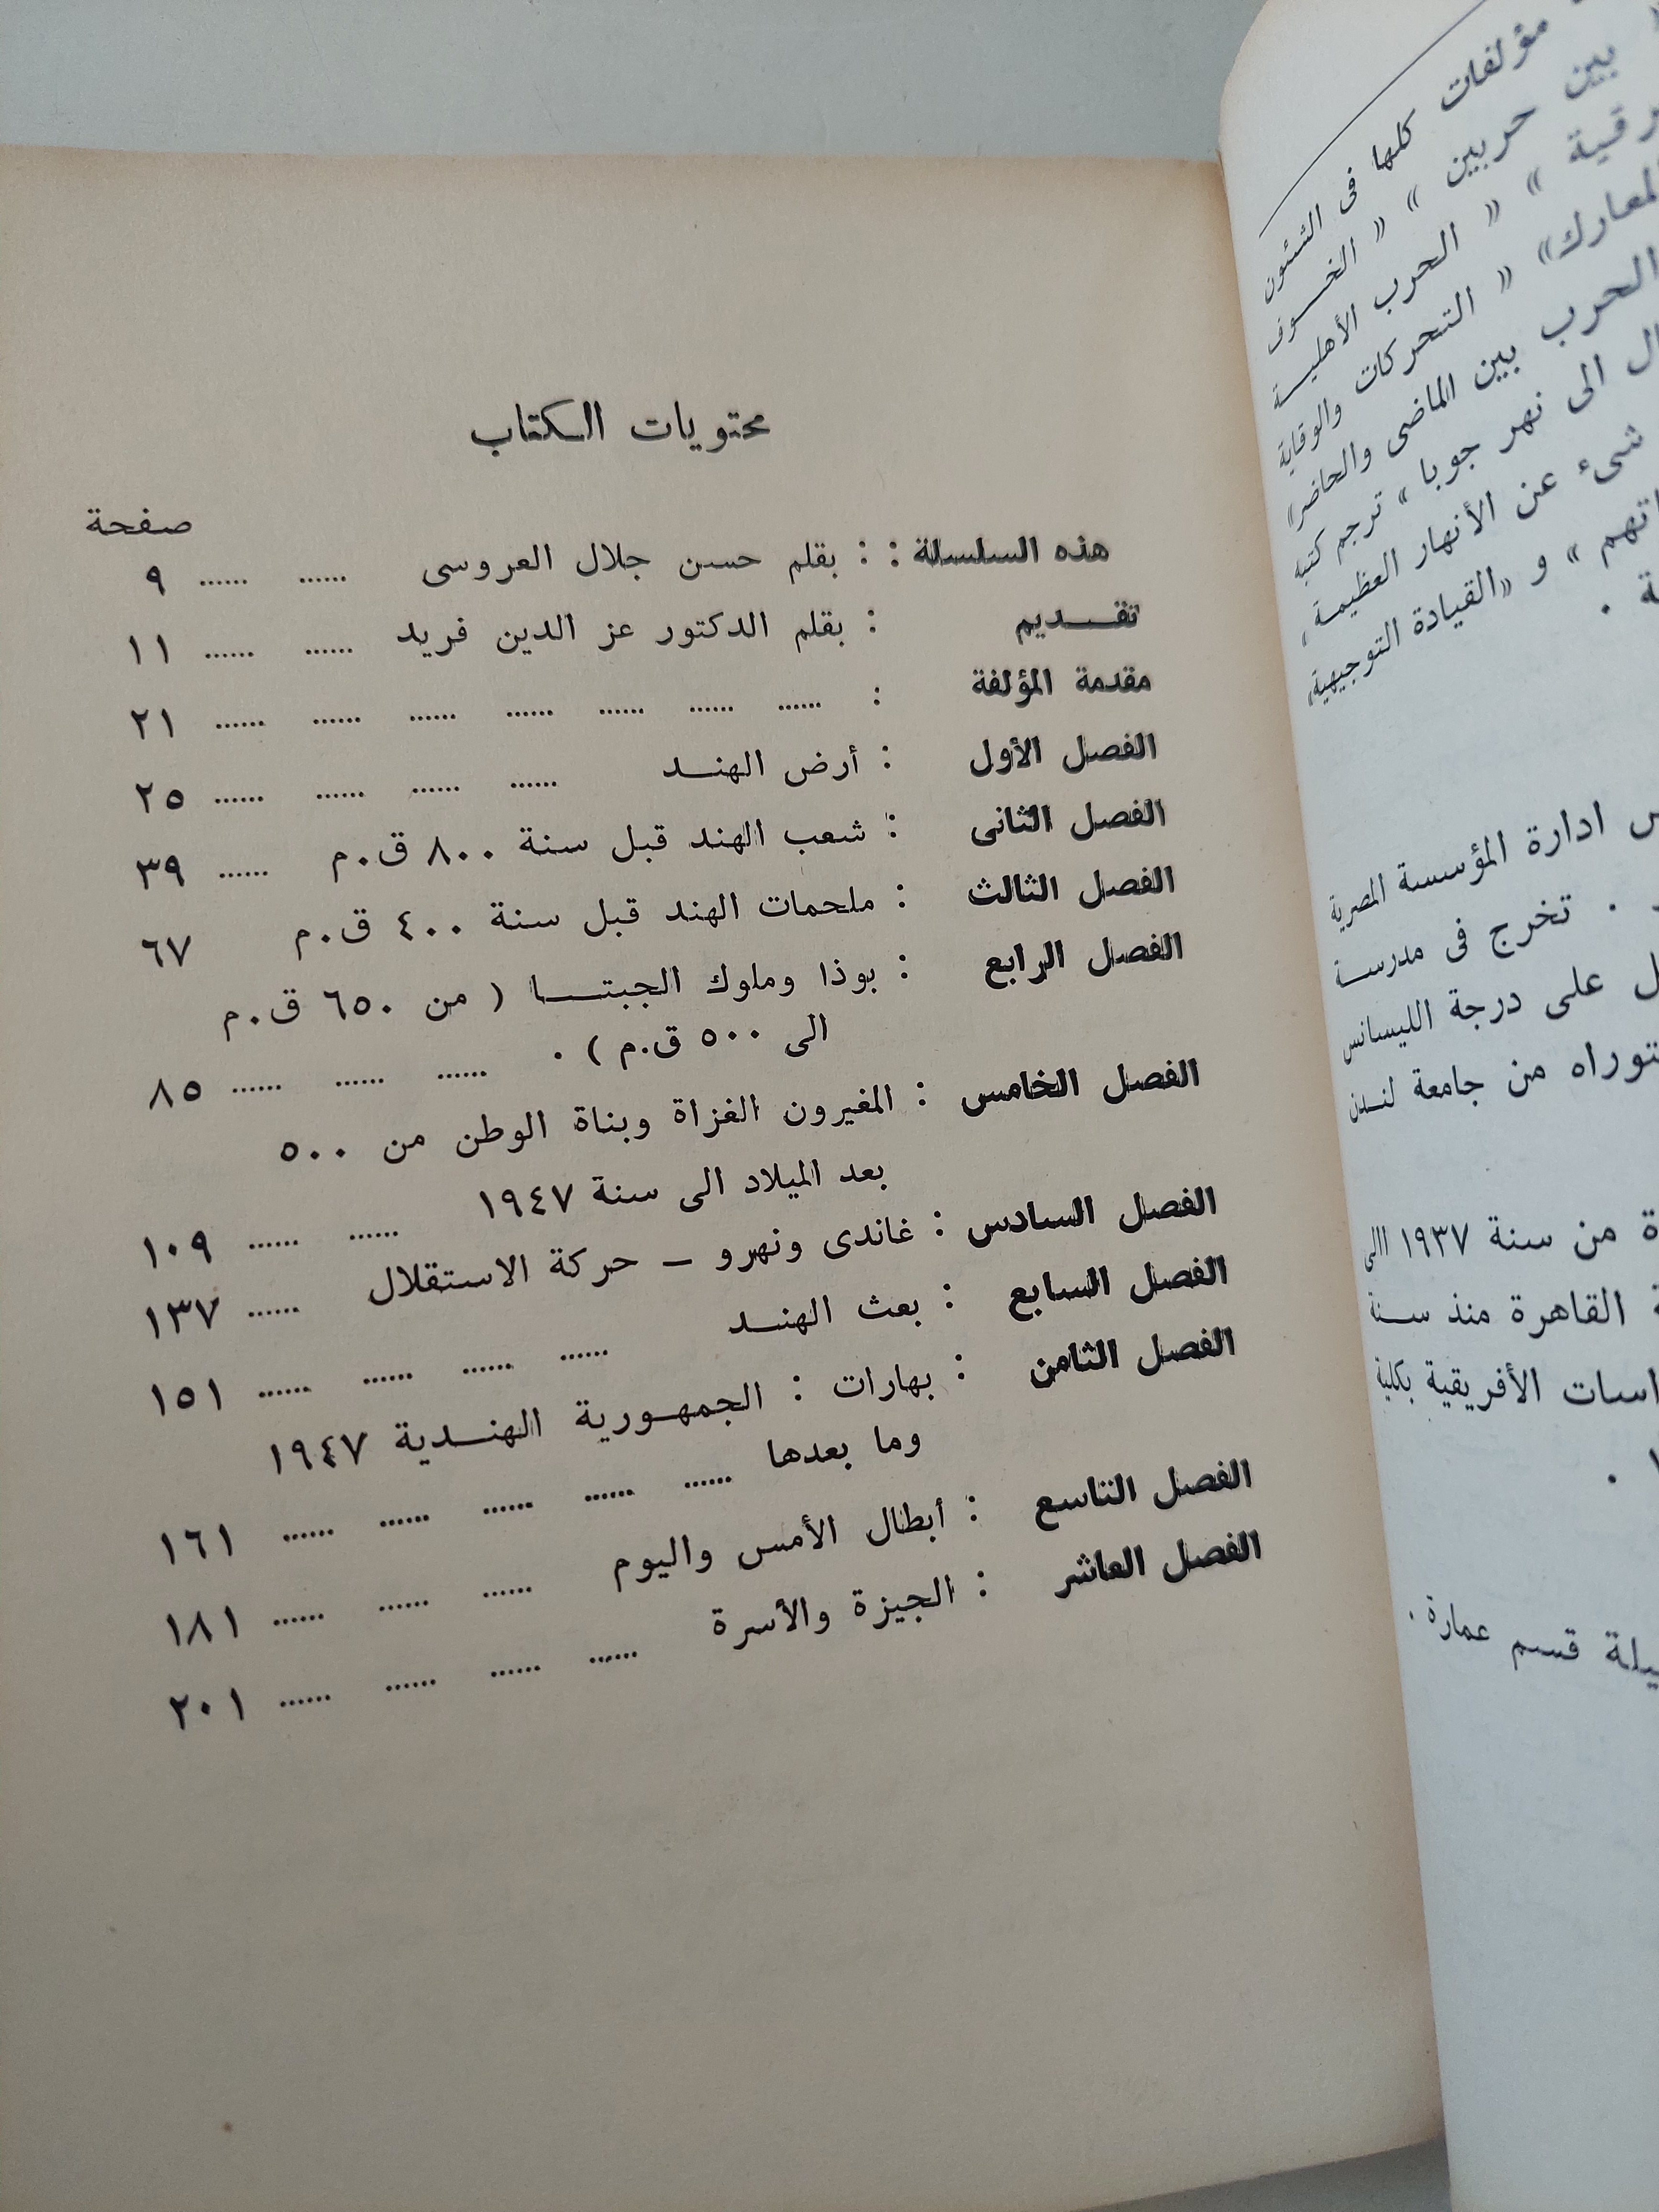 محتويات الكتاب
صفحة
هذه السلسلة : : بقلم حسن جلال العروسى ...... ...... ٩
تقـــديم : بقلم الدكتور عز الدين فريد ...... ...... ١١
مقدمة المؤلفة : ...... ...... ...... ...... ...... ...... ...... ٢١
الفصل الأول : أرض الهنــد ...... ...... ...... ...... ٢٥
الفصل الثانى : شعب الهند قبل سنة ٨٠٠ ق.م ...... ٣٩
الفصل الثالث : ملحمات الهند قبل سنة ٤٠٠ ق.م ٦٧
الفصل الرابع : بوذا وملوك الجبتـــا ( من ٦٥٠ ق.م
الى ٥٠٠ ق.م ) . ...... ...... ...... ٨٥
الفصل الخامس : المغيرون الغزاة وبناة الوطن من ٥٠٠
بعد الميلاد الى سنة ١٩٤٧ ...... ...... ١٠٩
الفصل السادس : غاندى ونهرو – حركة الاستقلال ...... ١٣٧
الفصل السابع : بعث الهنــد ...... ...... ...... ...... ١٥١
الفصل الثامن : بهارات : الجمهـورية الهنــدية ١٩٤٧
وما بعدها ...... ...... ...... ...... ...... ١٦١
الفصل التاسع : أبطال الأمس واليوم ...... ...... ...... ١٨١
الفصل العاشر : الجيزة والأسرة ...... ...... ...... ...... ٢٠١
مؤلفات كلها فى الشئون
بين حربين » « الخــوف
» « الحرب الأهليــة
« التحركات والوقاية
الحرب بين الماضى والحاضر»
الى نهر جوبا » ترجم كتبه
شىء عن الأنهار العظيمة ،
» و «القيادة التوجيهية
ادارة المؤسسة المصرية
. تخرج فى مدرســة
على درجة الليسانس
من جامعة لنــدن
من سنة ١٩٣٧ الى
القاهرة منذ ســنة
الأفريقية بكلية
قسم عمارة .